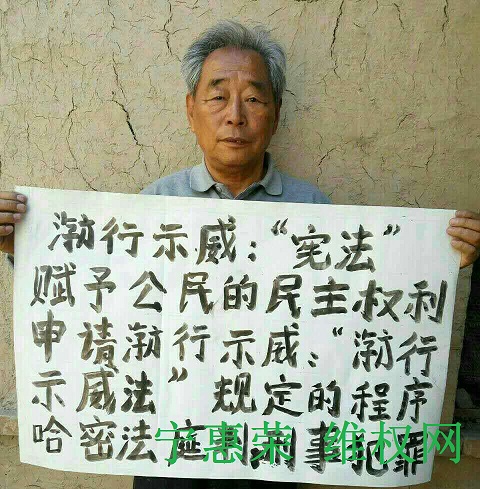 游行示威：“宪法”
赋予公民的民主权利
申请游行示威：“游行
示威法”规定的程序
哈密法庭判刑事犯罪
宁惠荣 维权网